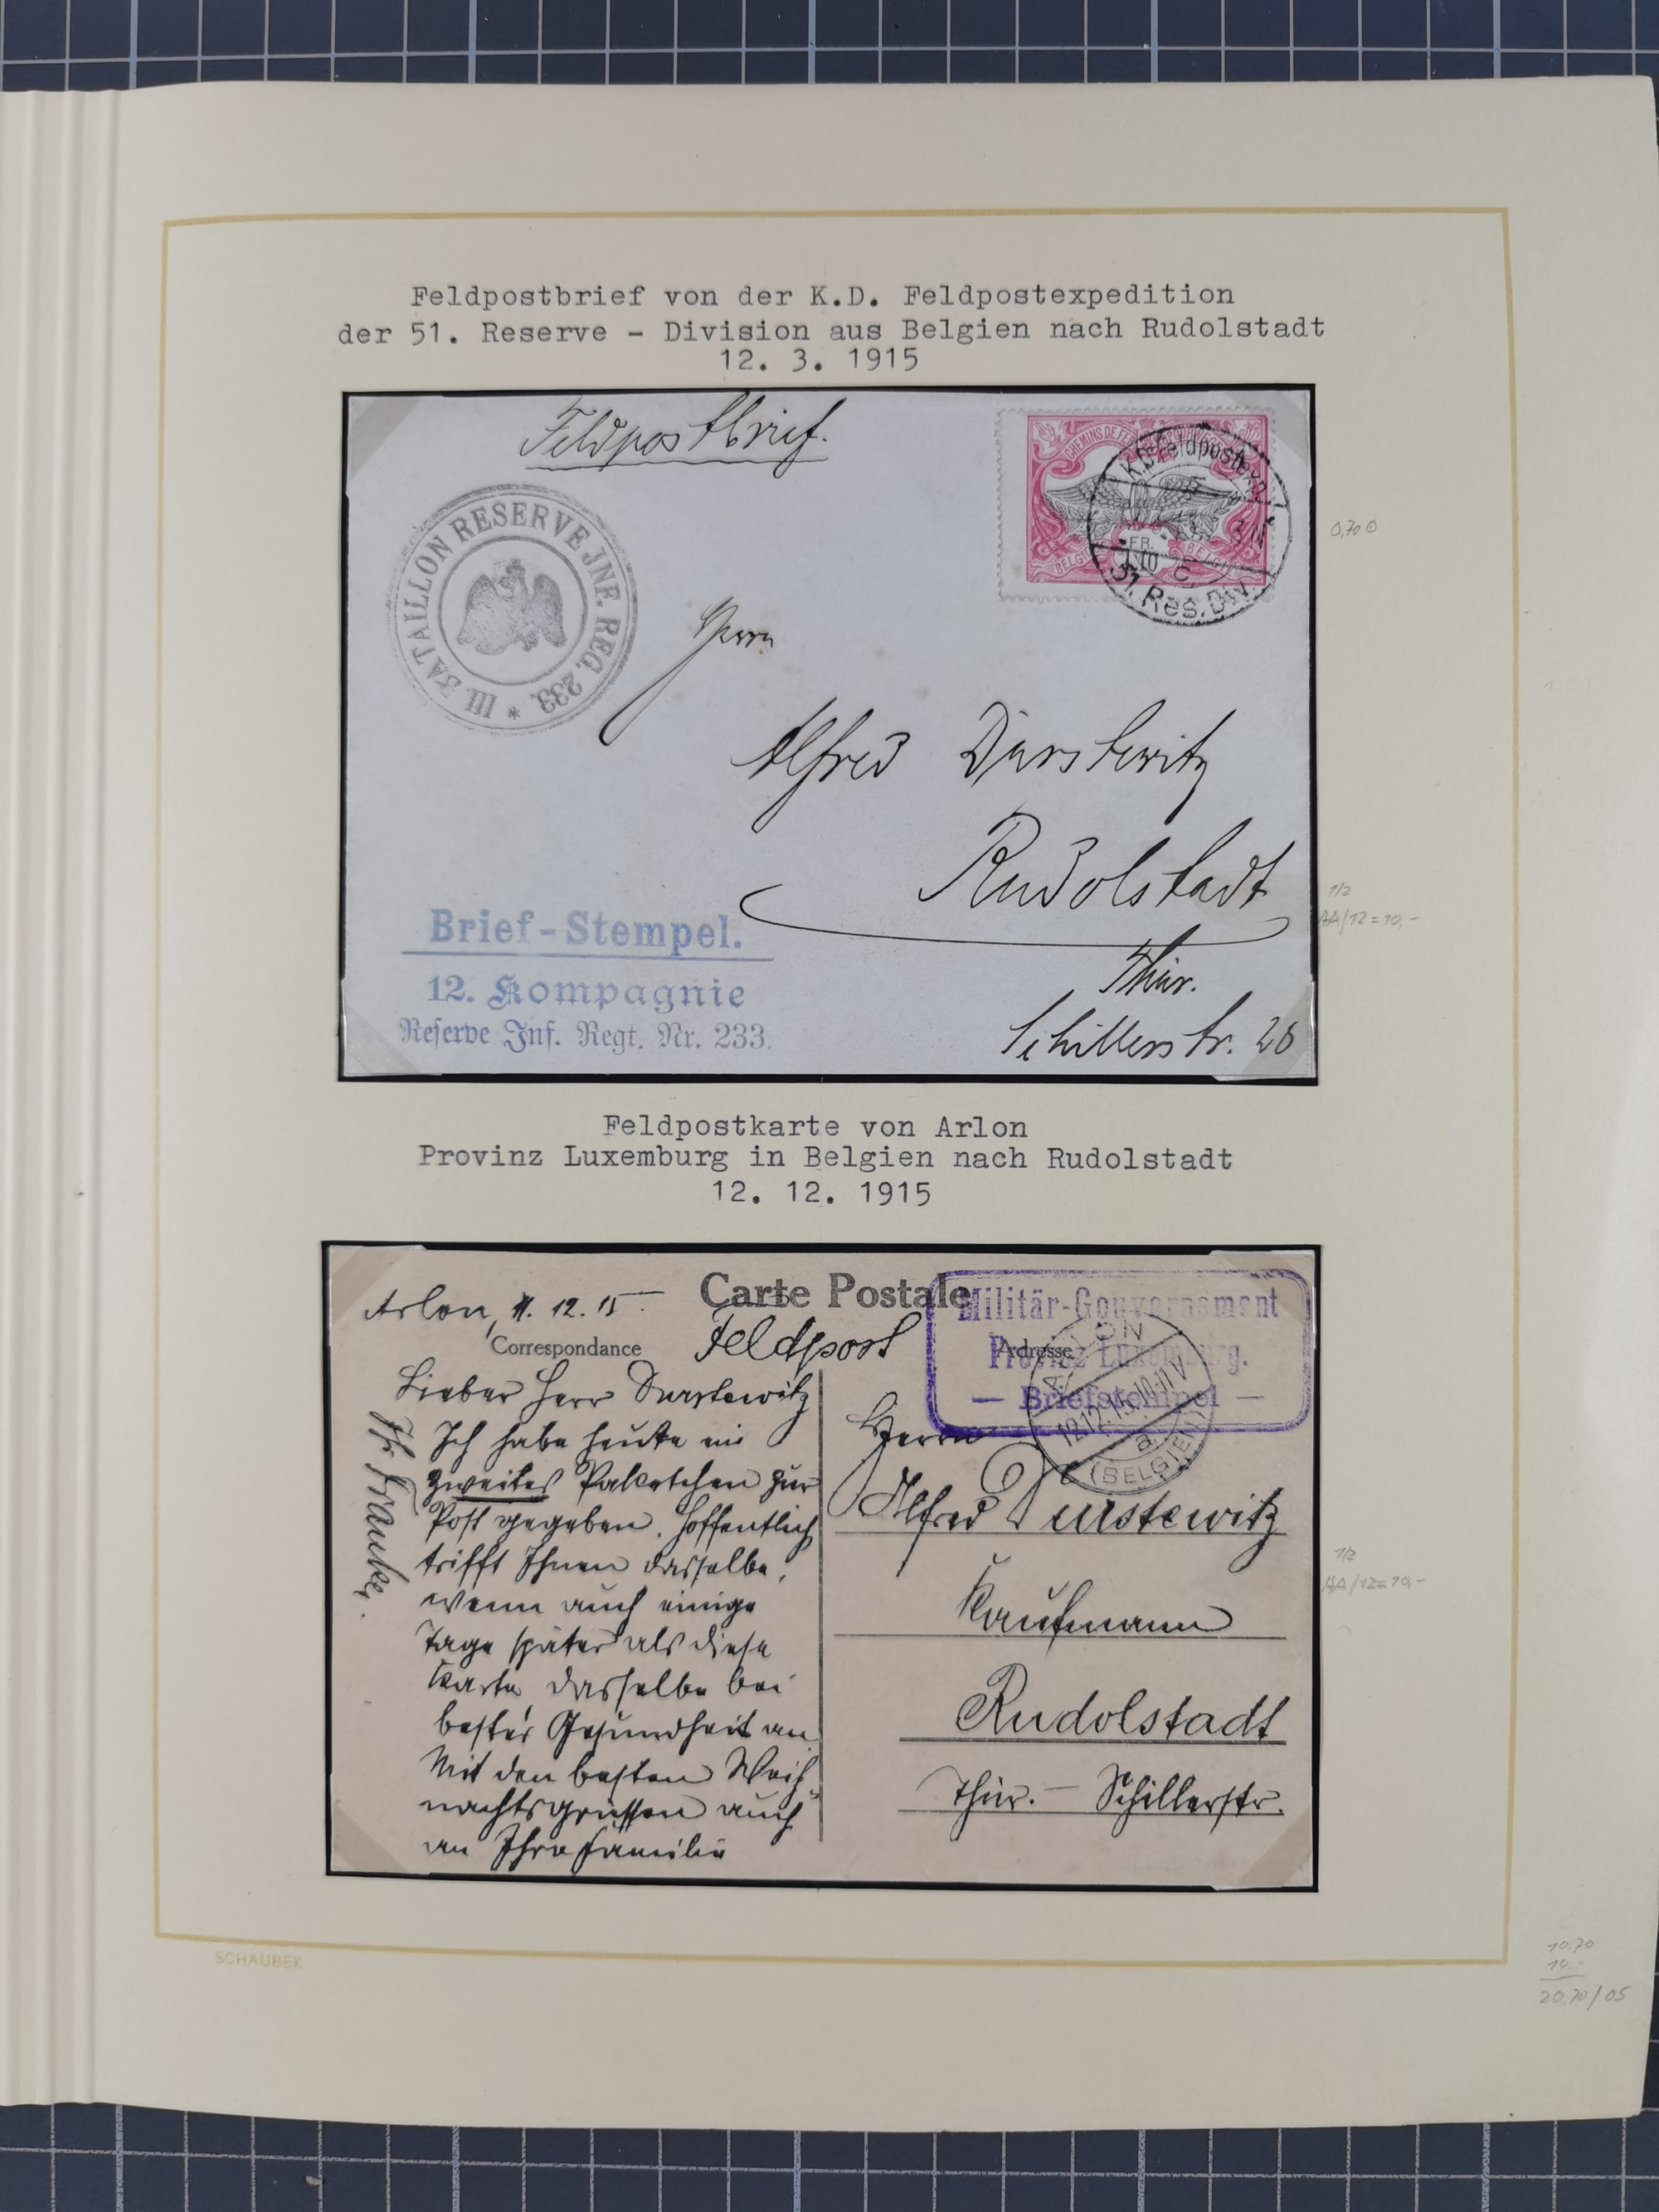 Feldpostbrief von der K.D. Feldpostexpedition
der 51. Reserve - Division aus Belgien nach Rudolstadt
12. 3. 1915
Feldpostbrief.
CHEMINS DE FER
K.D. Feldpostexp.
FR.
BELGIE
51. Res. Div.
III. BATAILLON RESERVE JNF. REG. 233. *
0,70
Herrn
Alfred Durstewitz
Rudolstadt
Thür.
Schillerstr. 26
1/2
AA/12=10,-
Brief-Stempel.
12. Kompagnie
Reserve Inf. Regt. Nr. 233.
Feldpostkarte von Arlon
Provinz Luxemburg in Belgien nach Rudolstadt
12. 12. 1915
Carte Postale
Arlon, 11. 12. 15
Correspondance
Feldpost
Adresse
Militär-Gouvernement
Provinz Luxemburg.
— Briefstempel —
ARLON
12.12.15.10-11V
a
(BELGIEN)
Lieber Herr Durstewitz
Ich habe heute ein
zweites Paketchen zur
Post gegeben. Hoffentlich
trifft Ihnen dasselbe,
wenn auch einige
Tage später als diese
Karte, dasselbe bei
bester Gesundheit an
Mit den besten Weih-
nachtsgrüssen auch
an Ihre Familie
Ihr Franke.
Herrn
Alfred Durstewitz
Kaufmann
Rudolstadt
Thür. — Schillerstr.
1/2
AA/12=10,-
SCHAUBEK
10.70
10.-
20.70/05